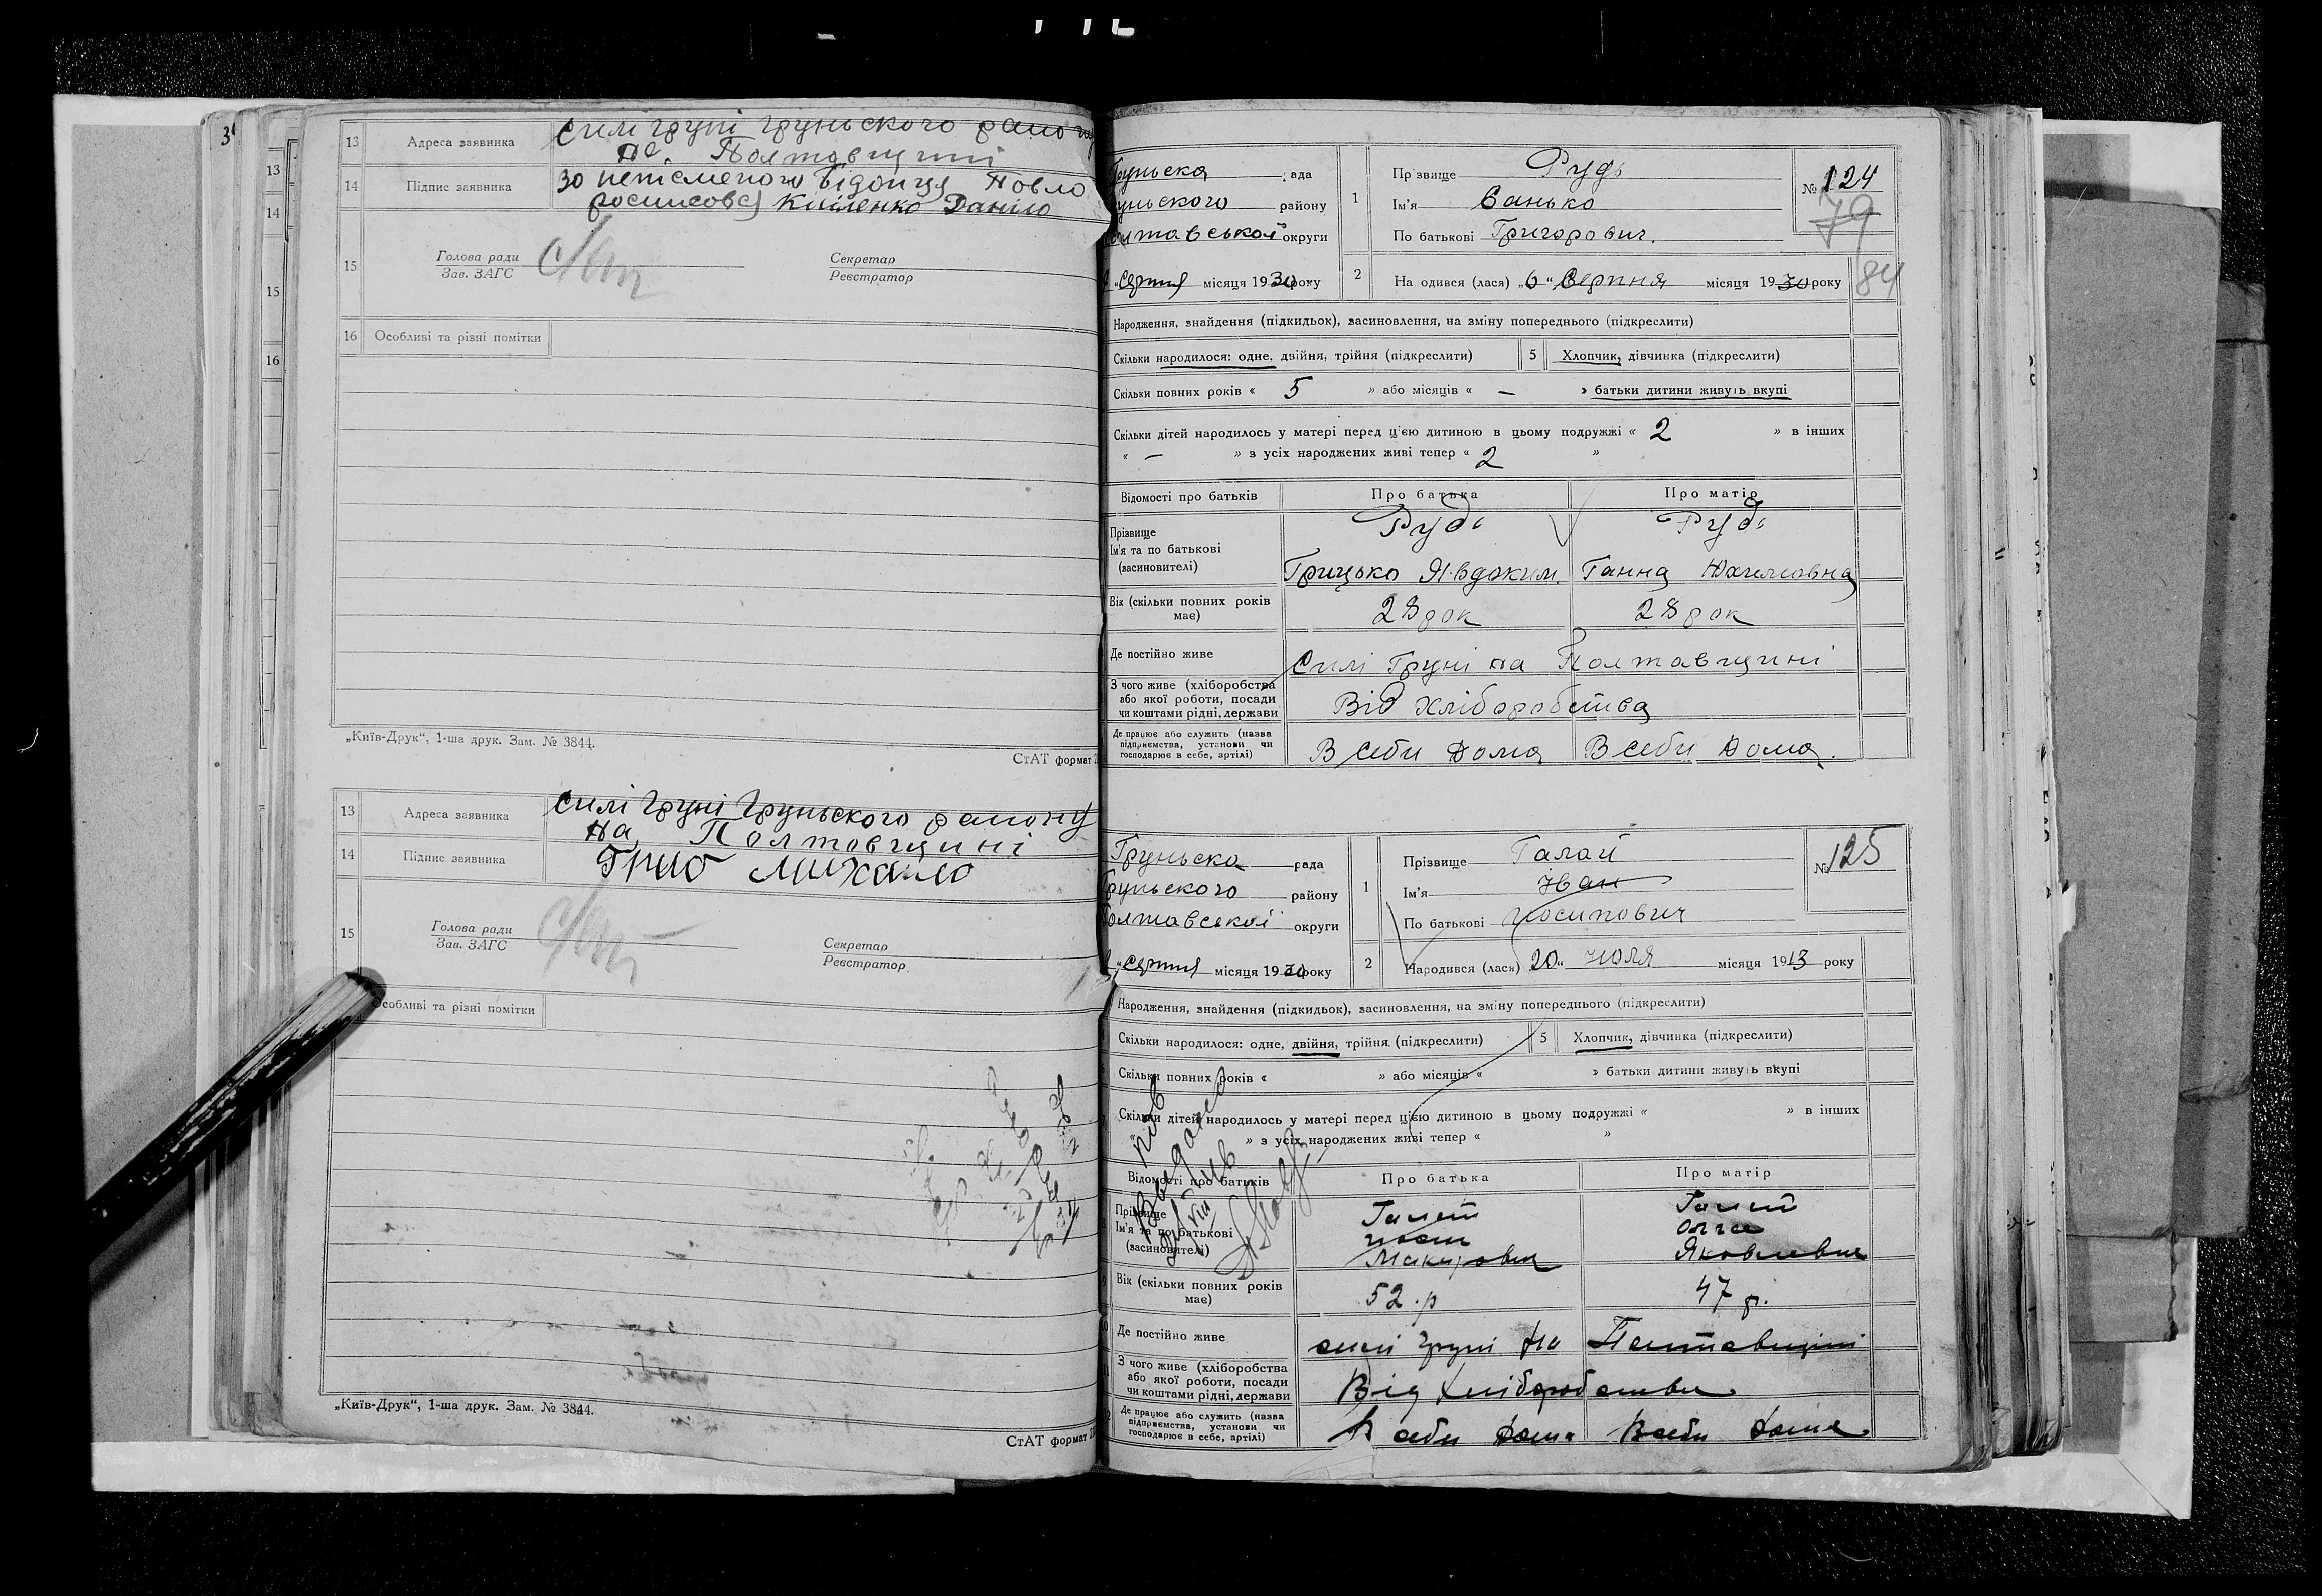 13 Адреса заявника Силі Груні Груньского
на Полтавщині
14 Підпис заявника за неписьменого
росписовсь Данило
15 Голова ради
Зав. ЗАГС
Секретар
Реєстратор
16 Особливі та різні помітки
„Київ-Друк“, 1-ша друк. Зам. № 3844.
СтАТ формат
13 Адреса заявника Силі Груні Груньского району
на Полтовщині
14 Підпис заявника Михаило
15 Голова ради
Зав. ЗАГС
Секретар
Реєстратор
Особливі та різні помітки
„Київ-Друк“, 1-ша друк. Зам. № 3844.
СтАТ формат
Груньска рада
уньского району
олтавськоі округи
серпня місяця 1930 року
1 Прізвище Рудь
Ім'я Ванько
По батькові Григорович.
№ 124
79
84
2 Народився (лася) „6“ Серпня місяця 1930 року
Народження, знайдення (підкидьок), засиновлення, на зміну попереднього (підкреслити)
Скільки народилося: одне, двійня, трійня (підкреслити) 5 Хлопчик, дівчинка (підкреслити)
Скільки повних років « 5 » або місяців « — » батьки дитини живуть вкупі
Скільки дітей народилось у матері перед цією дитиною в цьому подружжі « 2 » в інших
« — » з усіх народжених живі тепер « 2 »
Відомості про батьків Про батька Про матір
Прізвище
Ім'я та по батькові
(засиновителі)
Рудь Рудь
Грицько Явдоким. Ганна Юхимовна
Вік (скільки повних років
має)
28 рок 28 рок
Де постійно живе Силі Груні на Полтавщині
З чого живе (хліборобства
або якої роботи, посади
чи коштами рідні, держави
Від хліборобства
Де працює або служить (назва
підприємства, установи чи
господарює в себе, артілі)
В себи дома В себи дома.
Груньска рада
Груньского району
Полтавськоі округи
серпня місяця 1930 року
1 Прізвище Галай
Ім'я Іван
По батькові Йосипович
№ 125
2 Народився (лася) „20“ июля місяця 1913 року
Народження, знайдення (підкидьок), засиновлення, на зміну попереднього (підкреслити)
Скільки народилося: одне, двійня, трійня (підкреслити) 5 Хлопчик, дівчинка (підкреслити)
Скільки повних років « » або місяців « » батьки дитини живуть вкупі
Скільки дітей народилось у матері перед цією дитиною в цьому подружжі « » в інших
« » з усіх народжених живі тепер « »
Відомості про батьків Про батька Про матір
Прізвище
Ім'я та по батькові
(засиновителі)
Макарович
Яковлевна
Вік (скільки повних років
має)
52.р 47 р.
Де постійно живе силі Груні на Полтавщині
З чого живе (хліборобства
або якої роботи, посади
чи коштами рідні, держави
Від хліборобства
Де працює або служить (назва
підприємства, установи чи
господарює в себе, артілі)
В себи дома В себи дома